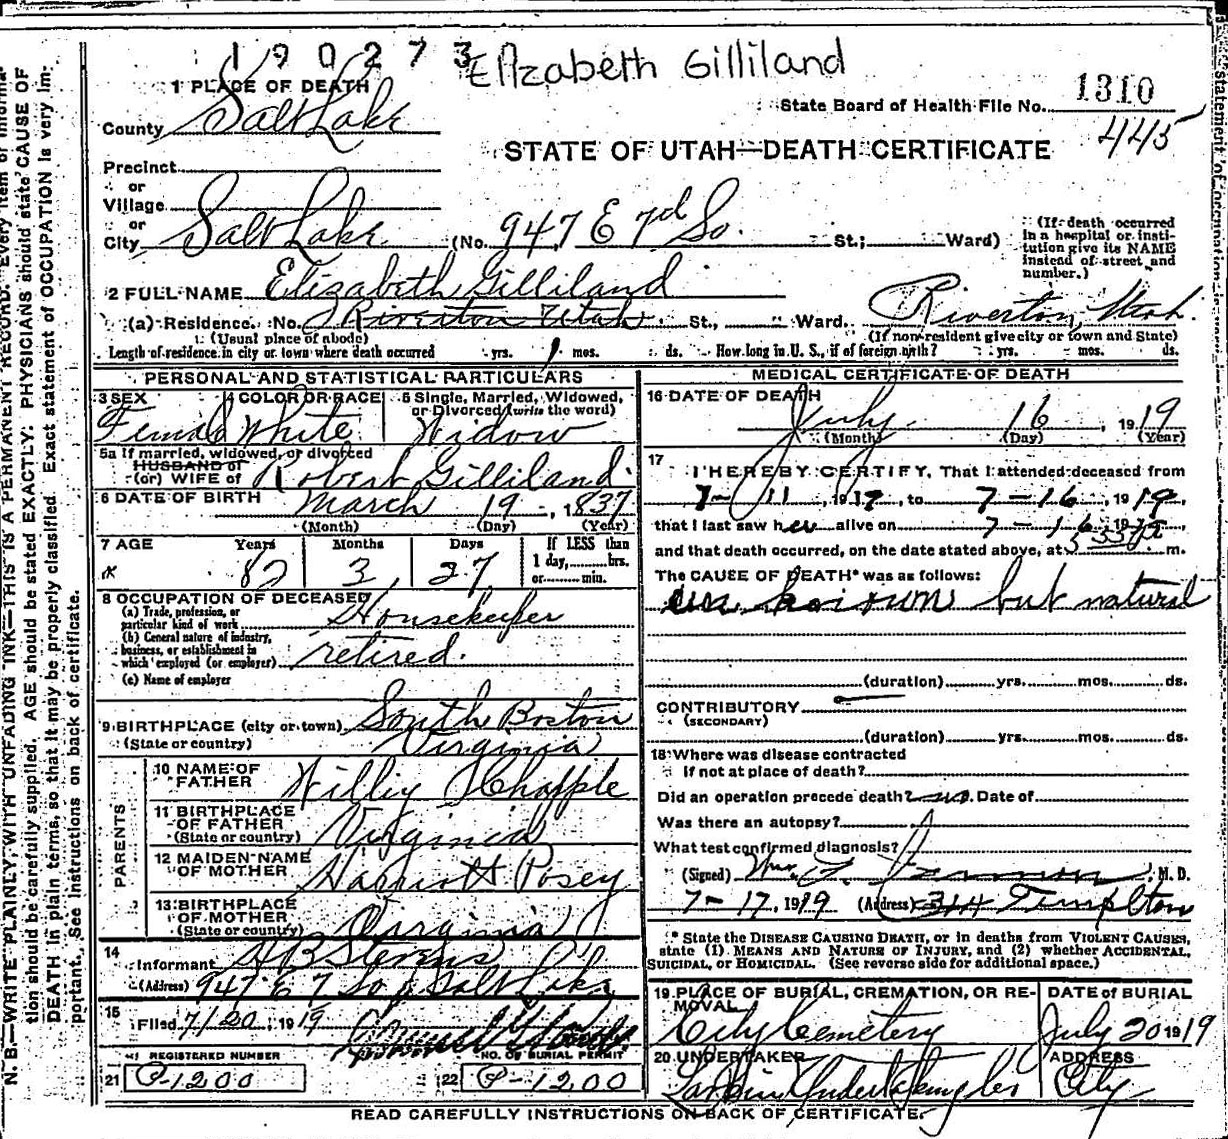 190273 Elizabeth Gilliland
1 PLACE OF DEATH
State Board of Health File No. 1310
County Salt Lake
445
STATE OF UTAH—DEATH CERTIFICATE
Precinct
or
Village
or
City Salt Lake (No. 947 E 7d So. St.; Ward)
(If death occurred in a hospital or institution give its NAME instead of street and number.)
2 FULL NAME Elizabeth Gilliland
(a) Residence. No. Riverton Utah St., Ward. Riverton, Utah.
(Usual place of abode) (If non-resident give city or town and State)
Length of residence in city or town where death occurred yrs. 1 mos. ds. How long in U. S., if of foreign birth? yrs. mos. ds.
PERSONAL AND STATISTICAL PARTICULARS
3 SEX 4 COLOR OR RACE 5 Single, Married, Widowed, or Divorced (write the word)
Female White Widow
5a If married, widowed, or divorced
HUSBAND of
(or) WIFE of Robert Gilliland
6 DATE OF BIRTH March 19, 1837
(Month) (Day) (Year)
7 AGE Years Months Days If LESS than 1 day, hrs. or min.
82 3 27
8 OCCUPATION OF DECEASED
(a) Trade, profession, or particular kind of work Housekeeper
(b) General nature of industry, business, or establishment in which employed (or employer) retired.
(c) Name of employer
9 BIRTHPLACE (city or town) South Boston
(State or country) Virginia
PARENTS
10 NAME OF FATHER Williy Chapple
11 BIRTHPLACE OF FATHER (State or country) Virginia
12 MAIDEN NAME OF MOTHER Harriott Posey
13 BIRTHPLACE OF MOTHER (State or country) Virginia
14 Informant H B Stevens
(Address) 947 E 7 So Salt Lake
15 Filed 7/20, 1919
REGISTERED NUMBER NO. OF BURIAL PERMIT
21 P-1200 22 P-1200
MEDICAL CERTIFICATE OF DEATH
16 DATE OF DEATH
July 16, 1919
(Month) (Day) (Year)
17 I HEREBY CERTIFY, That I attended deceased from
7-11, 1919, to 7-16, 1919,
that I last saw her alive on 7-16, 1919
and that death occurred, on the date stated above, at m.
The CAUSE OF DEATH* was as follows:
unknown but natural
(duration) yrs. mos. ds.
CONTRIBUTORY
(SECONDARY)
(duration) yrs. mos. ds.
18 Where was disease contracted
if not at place of death?
Did an operation precede death? no. Date of
Was there an autopsy?
What test confirmed diagnosis?
(Signed) Wm. F. M. D.
7-17, 1919 (Address) 314 Templeton
* State the DISEASE CAUSING DEATH, or in deaths from VIOLENT CAUSES,
state (1) MEANS AND NATURE OF INJURY, and (2) whether ACCIDENTAL,
SUICIDAL, or HOMICIDAL. (See reverse side for additional space.)
19 PLACE OF BURIAL, CREMATION, OR REMOVAL DATE of BURIAL
City Cemetery July 20 1919
20 UNDERTAKER ADDRESS
City
READ CAREFULLY INSTRUCTIONS ON BACK OF CERTIFICATE.
N. B.—WRITE PLAINLY, WITH UNFADING INK—THIS IS A PERMANENT RECORD. Every item of informa-
tion should be carefully supplied. AGE should be stated EXACTLY. PHYSICIANS should state CAUSE OF
DEATH in plain terms, so that it may be properly classified. Exact statement of OCCUPATION is very im-
portant. See instructions on back of certificate.